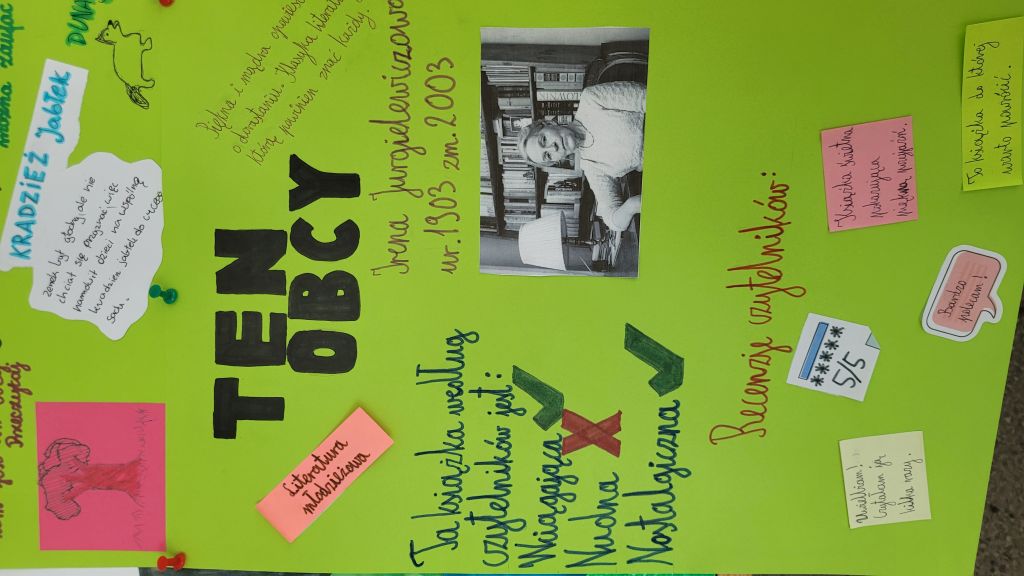 można zaufać
DUNAJ
KRADZIEŻ Jabłek
Zenek był głodny ale nie
chciał się przyznać więc
namówił dzieci na wspólną
kradzież jabłek do cyzego
sadu.
Przeczytaj
Piękna i mądra opowieść
o dorastaniu. Klasyka literatu
którą powinien znać każdy.
TEN
OBCY
Literatura
młodzieżowa
Irena Jurgielewiczowa
ur. 1903 zm. 2003
Ta książka według
czytelników jest:
Wciągająca
Nudna
Nostalgiczna
Recenzje czytelników:
Książka świetna
pokazująca
piękną przyjaźń.
To książka do której
warto powrócić.
*****
5/5
Bardzo
polecam!
Uwielbiam!
Czytałam ją
kilka razy.